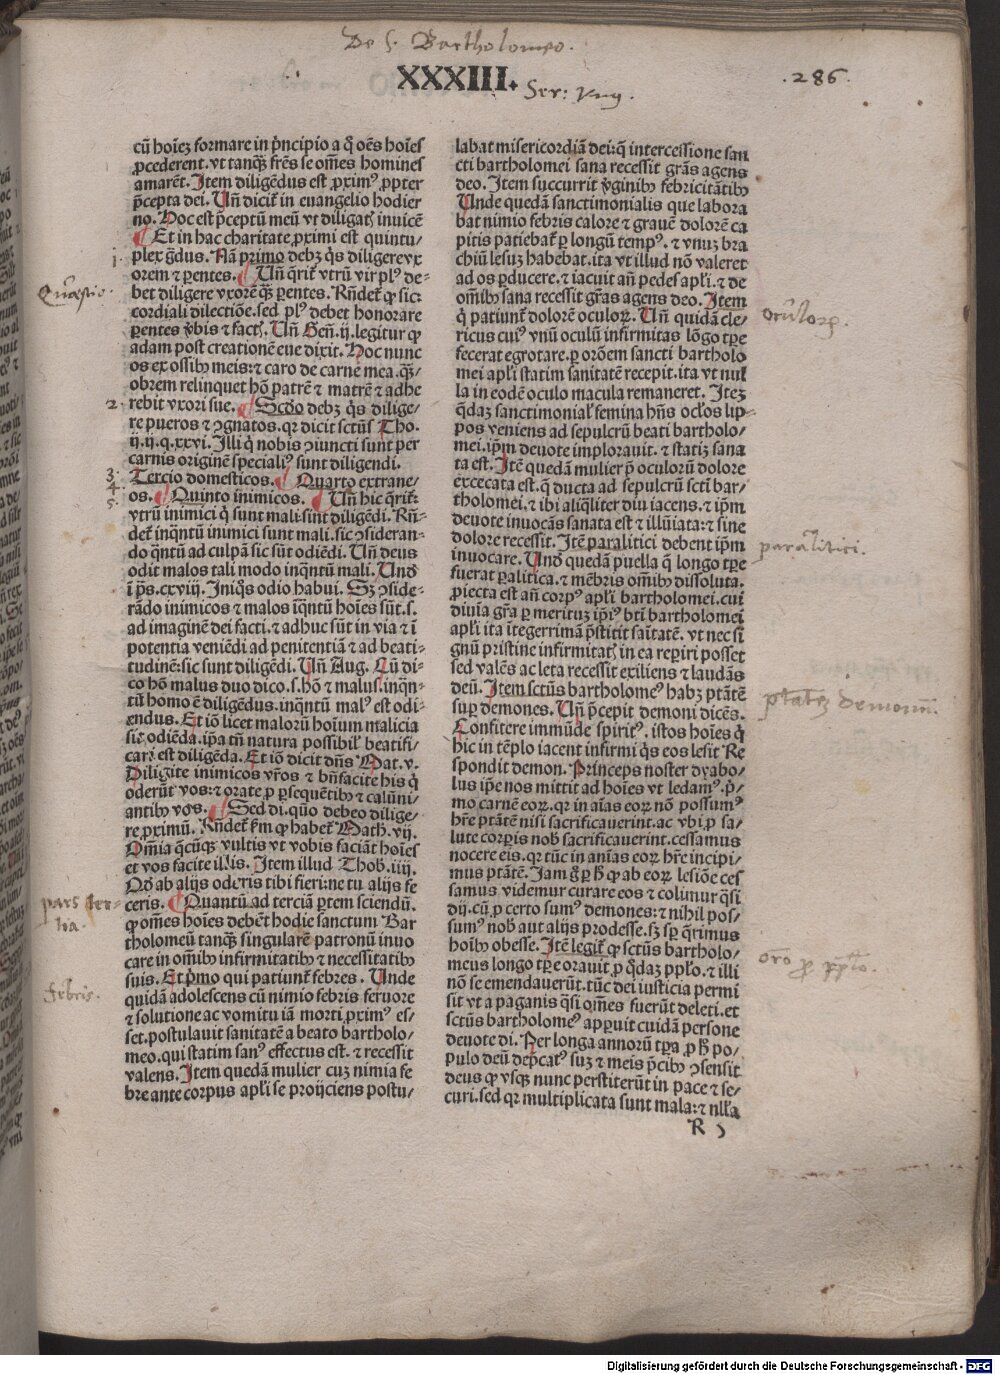 De s. Bartholomeo.
XXXIII.
Ser: Vng.
.286.
cū hoiez formare in pͥncipio a q̄ oēs hoīes
ꝓcederent. vt tanqꝫ frēs se om̄es homines
amarēt. Item diligēdus est ꝓximꝰ ꝓpter
p̄cepta dei. Un̄ dicit̄ in euangelio hodier
no. Hoc est p̄ceptū meū vt diligatꝭ inuicē
¶ Et in hac charitate ꝓximi est quintu/
plex gͣdus. Nā primo debꝫ qͥs diligere vx
orem ⁊ ꝑentes. ¶ Un̄ q̄rit̄ vtrū vir plꝰ de⸗
bet diligere vxorē qꝫ ꝑentes. Rn̄det̄ ꝙ sic:
cordiali dilectiōe. sed plꝰ debet honorare
ꝑentes v̄bis ⁊ factꝭ. Un̄ Gen̄. ij. legitur ꝙ
adam post creationē eue dixit. Hoc nunc
os ex ossibꝰ meis: ⁊ caro de carne mea. qꝫ⸗
obrem relinquet hō patrē ⁊ matrē ⁊ adhe
rebit vxori sue. ¶ Scd̄o debꝫ qͥs dilige⸗
re pueros ⁊ ꝯgnatos. qꝛ dicit sctūs Tho.
ij. ij. q. xxvi. Illi qͥ nobis ꝯiuncti sunt per
carnis originē specialiꝰ sunt diligendi.
Tercio domesticos. ¶ Quarto extrane⸗
os. ¶ Quinto inimicos. ¶ Un̄ hic q̄rit̄:
vtrū inimici qͥ sunt mali. sint diligēdi. Rn̄⸗
det̄ inqͣntū inimici sunt mali. sic ꝯsideran⸗
do qͣntū ad culpā sic sūt odiēdi. Un̄ deus
odit malos tali modo inqͣntū mali. Und̄
i ps̄. cxviij. Iniqͦs odio habui. Sꝫ ꝯside⸗
rādo inimicos ⁊ malos īqͣntū hoīes sūt. s.
ad imaginē dei facti. ⁊ adhuc sūt in via ⁊ ī
potentia veniēdi ad penitentiā ⁊ ad beati⸗
tudinē: sic sunt diligēdi. Un̄ Aug. Cū di⸗
co hōm malus duo dico. s. hō ⁊ malus. inqͣn⸗
tū homo ē diligēdus. inqͣntū malꝰ est odi⸗
endus. Et iō licet malorū hoīum malicia
sic odiēda. ip̄a tn̄ natura possibil̄ beatifi/
cari est diligēda. Et iō dicit dn̄s Mat. v.
Diligite inimicos vr̄os ⁊ bn̄facite his qͥ
oderūt vos: ⁊ orate ꝓ ꝑsequētibꝰ ⁊ calūni/
antibꝰ vos. ¶ Sed di. quō debeo dilige⸗
re ꝓximū. Rn̄det̄ fm ꝙ habet̄ Math. vij.
Om̄ia qͣcūqꝫ vultis vt vobis faciāt hoīes
et vos facite illis. Item illud Thob. iiij.
Qd̄ ab alijs oderis tibi fieri: ne tu alijs fe
ceris. ¶ Quantū ad terciā ꝑtem sciendū.
ꝙ om̄es hoīes debēt hodie sanctum Bar
tholomeū tanqꝫ singularē patronū inuo
care in oībꝰ infirmitatibꝰ ⁊ necessitatibꝰ
suis. Et pͥmo qui patiunt̄ febres. Unde
quidā adolescens cū nimio febris feruore
⁊ solutione ac vomitu iā morti ꝓximꝰ es/
set. postulauit sanitatē a beato bartholo/
meo. qui statim sanꝰ effectus est. ⁊ recessit
valens. Item quedā mulier cuꝫ nimia fe
bre ante corpus apl̄i se proijciens postu/
labat misericordiā dei: q̄ intercessione san
cti bartholomei sana recessit gr̄as agens
deo. Item succurrit v̄ginibꝰ febricitātibꝰ
Unde quedā sanctimonialis que labora
bat nimio febris calore ⁊ grauē dolorē ca
pitis patiebat̄ ꝑ longū tempꝰ. ⁊ vnuꝫ bra
chiū lesuꝫ habebat. ita vt illud nō valeret
ad os ꝑducere. ⁊ iacuit an̄ pedes apl̄i. ⁊ de
om̄ibꝰ sana recessit gr̄as agens deo. Item
qͥ patiunt̄ dolorē oculoꝝ. Un̄ quidā cle/
ricus cuiꝰ vnū oculū infirmitas lōgo tꝑe
fecerat egrotare. ꝑ orōem sancti bartholo
mei apl̄i statim sanitatē recepit. ita vt nul
la in eodē oculo macula remaneret. Iteꝫ
q̄daꝫ sanctimonial̄ femina hn̄s ocl̄os lip⸗
pos veniens ad sepulcrū beati bartholo/
mei. ip̄m deuote implorauit. ⁊ statiꝫ sana
ta est. Itē quedā mulier p̄ oculorū dolore
excecata est. q̄ ducta ad sepulcrū scti bar/
tholomei. ⁊ ibi aliqͣliter diu iacens. ⁊ ip̄m
deuote inuocās sanata est ⁊ illūiata: ⁊ sine
dolore recessit. Itē paralitici debent ip̄m
inuocare. Und̄ quedā puella q̄ longo tꝑe
fuerat ꝑalitica. ⁊ mēbris om̄ibꝰ dissoluta.
ꝓiecta est an̄ corpꝰ apl̄i bartholomei. cui
diuīa gr̄a ꝑ meritum ip̄iꝰ btī bartholomei
apl̄i ita ītegerrimā p̄stitit saītatē. vt nec si
gnū pristine infirmitatꝭ in ea reꝑiri posset
sed valēs ac leta recessit exiliens ⁊ laudās
deū. Item sctūs bartholomeꝰ habꝫ ptātē
suꝑ demones. Un̄ p̄cepit demoni dicēs.
Confitere immūde spiritꝰ. istos hoīes qͥ
hic in tēplo iacent infirmi qͥs eos lesit Re
spondit demon. Princeps noster dyabo/
lus ip̄e nos mittit ad hoīes vt ledamꝰ. pͥ/
mo carnē eoꝝ. qꝛ in aīas eoꝝ nō possumꝰ
hr̄e ptātē nisi sacrificauerint. ac vbi ꝓ sa/
lute corꝑis nob̄ sacrificauerint. cessamus
nocere eis. qꝛ tūc in aīas eoꝝ hr̄e incipi/
mus ptātē. Iam gͦ ꝑ h̄ ꝙ ab eoꝝ lesiōe ces
samus videmur curare eos ⁊ colimur qͣsi
dij. cū ꝓ certo sumꝰ demones: ⁊ nihil pos/
sumꝰ nob̄ aut alijs prodesse. sꝫ sꝑ q̄rimus
hoībꝰ obesse. Itē legit̄ ꝙ sctūs bartholo/
meus longo tꝑe orauit ꝓ qͦdaꝫ pplo. ⁊ illi
nō se emendauerūt. tūc dei iusticia permi
sit vt a paganis qͣsi om̄es fuerūt deleti. et
sctūs bartholomeꝰ apparuit cuidā persone
deuote di. Per longa annorū tꝑa ꝓ h̄ po/
pulo deū dep̄catꝰ suꝫ ⁊ meis p̄cibꝰ ꝯsensit
deus ꝙ vsqꝫ nunc perstiterūt in pace ⁊ se/
curi. sed qꝛ multiplicata sunt mala: ⁊ nlla
R
1.
Quæstio.
2.
3.
4.
5.
pars ter⸗
tia.
febris.
oculorꝝ.
paralitici.
ptāteꝫ demonū.
oro ꝓ pplo.
Digitalisierung gefördert durch die Deutsche Forschungsgemeinschaft - DFG